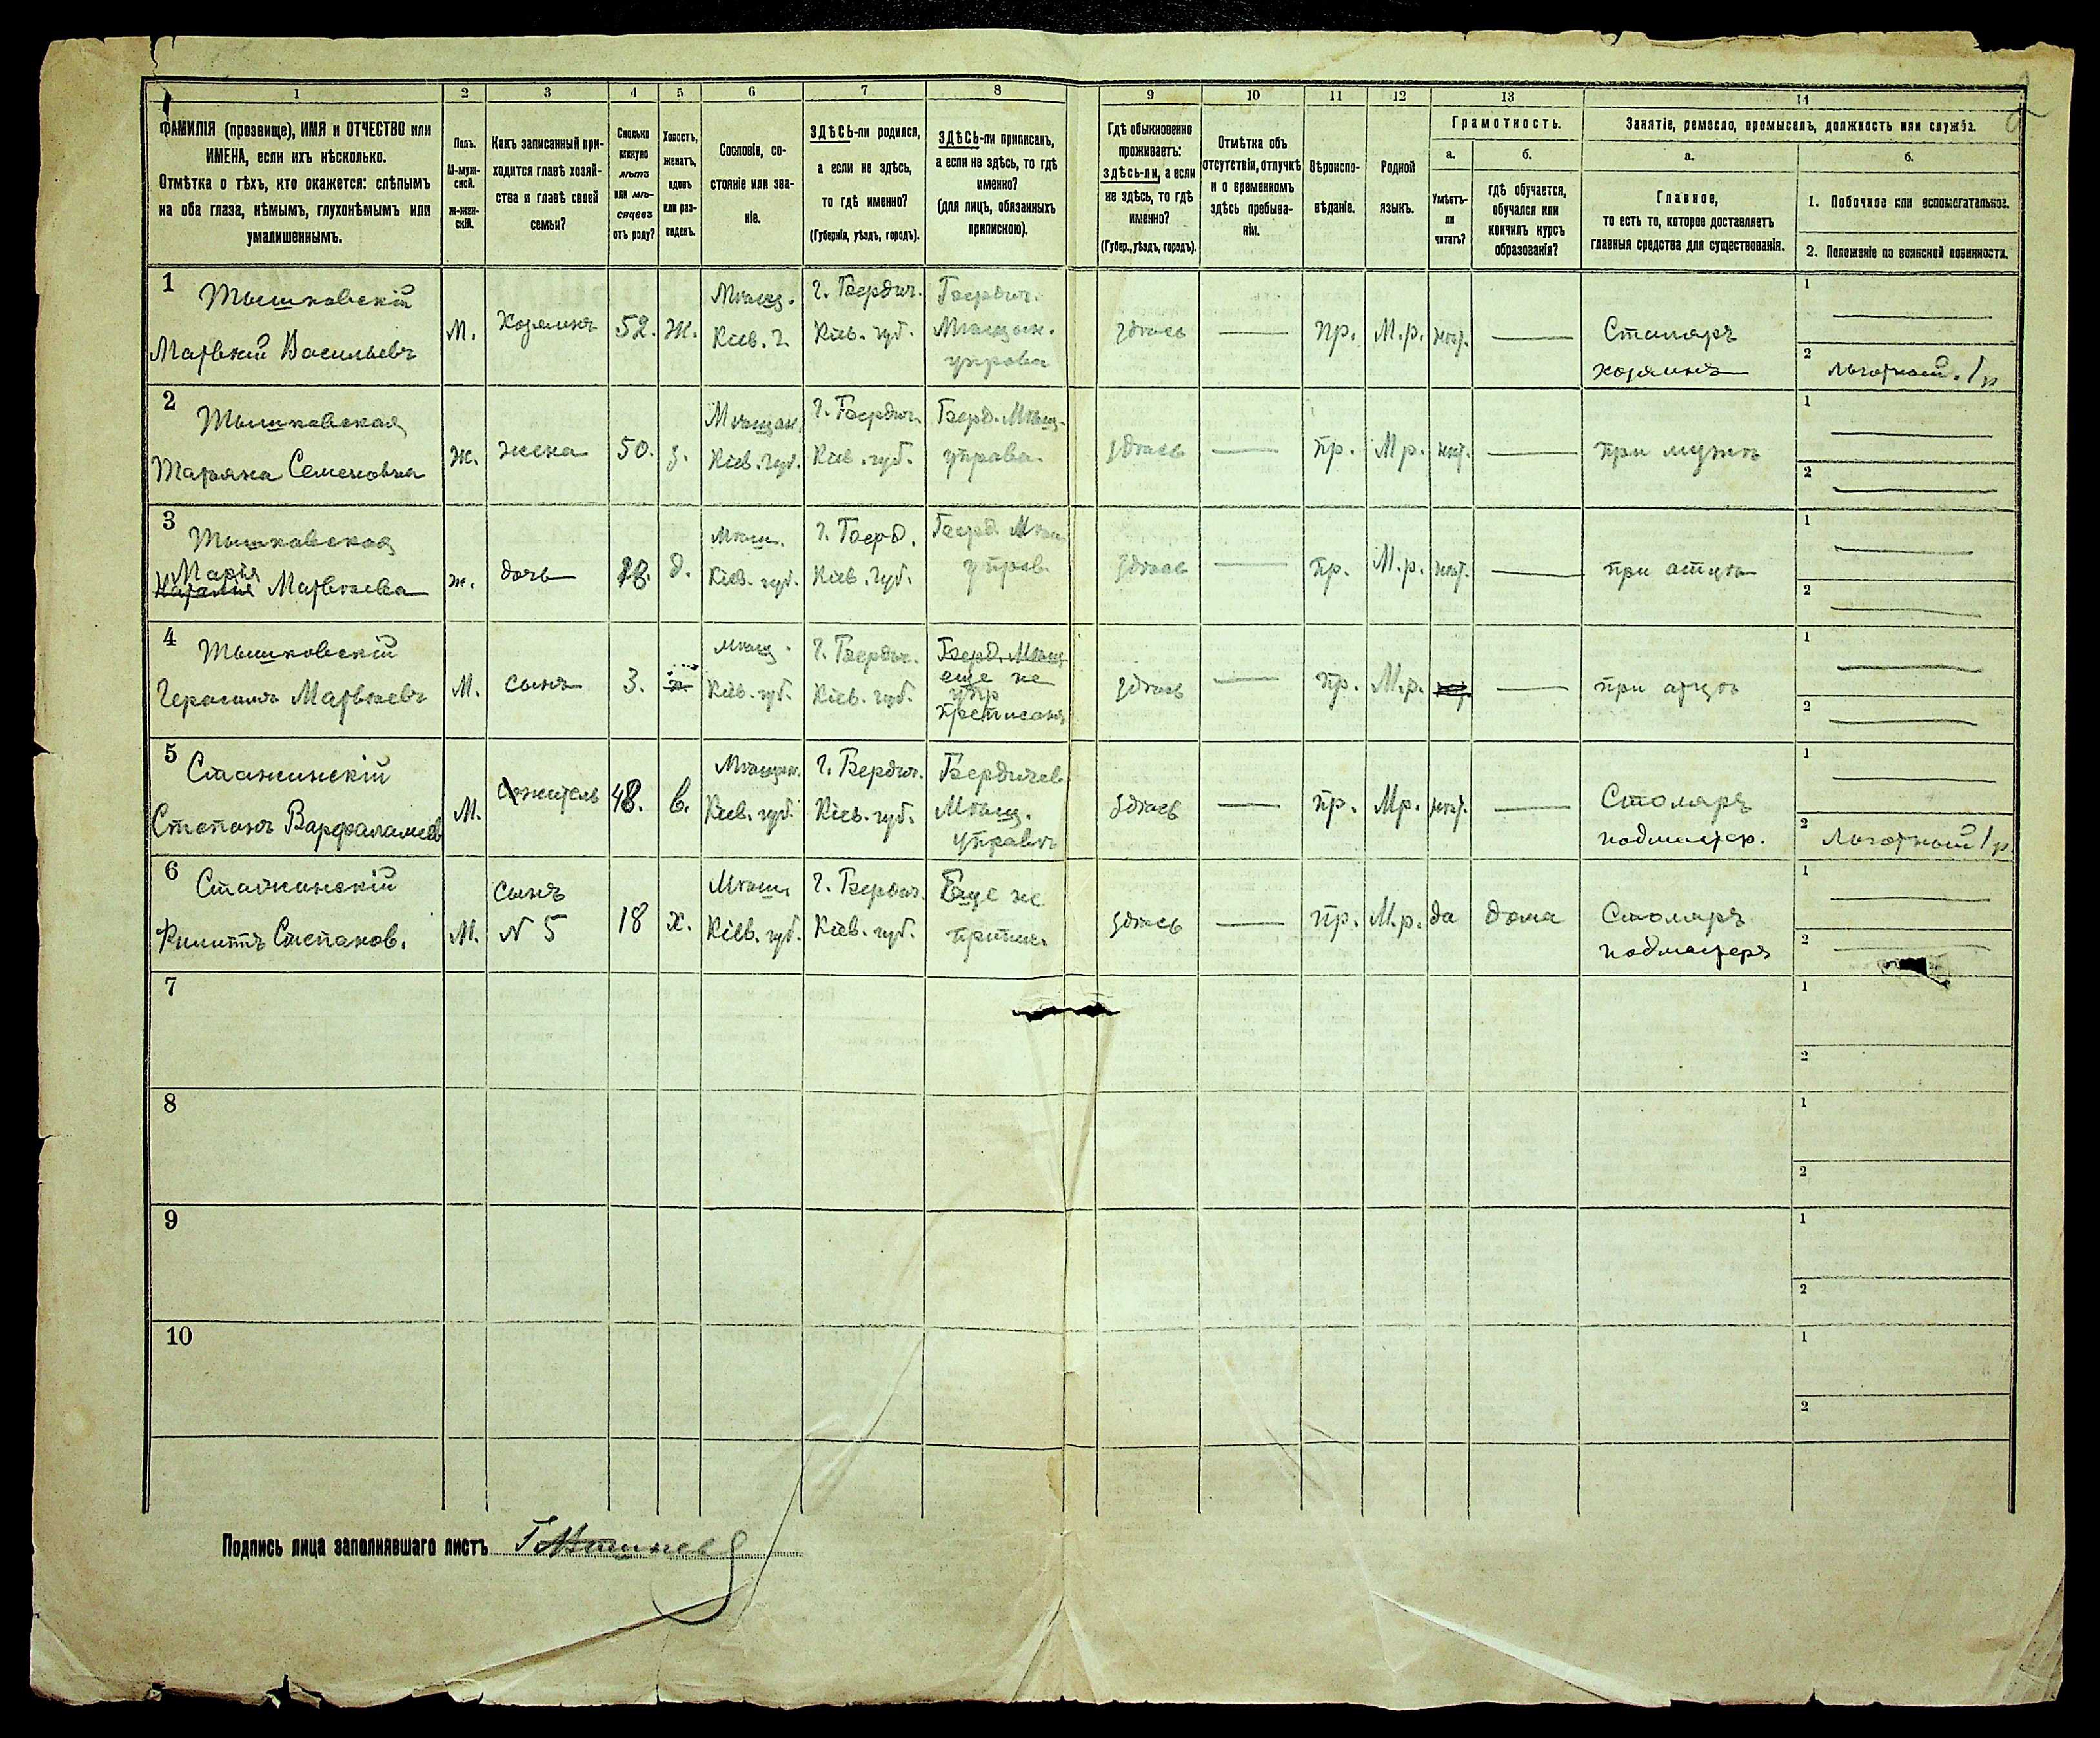 1 2 3 4 5 6 7 8 9 10 11 12 13 14
ФАМИЛІЯ (прозвище), ИМЯ и ОТЧЕСТВО или
ИМЕНА, если ихъ нѣсколько.
Отмѣтка о тѣхъ, кто окажется: слѣпымъ
на оба глаза, нѣмымъ, глухонѣмымъ или
умалишеннымъ.
Полъ.
М-муж-
ской.
ж-жен-
скій.
Какъ записанный при-
ходится главѣ хозяй-
ства и главѣ своей
семьи?
Сколько
минуло
лѣтъ
или мѣ-
сяцевъ
отъ роду?
Холостъ,
женатъ,
вдовъ
или раз-
веденъ.
Сословіе, со-
стояніе или зва-
ніе.
ЗДѢСЬ-ли родился,
а если не здѣсь,
то гдѣ именно?
(Губернія, уѣздъ, городъ).
ЗДѢСЬ-ли приписанъ,
а если не здѣсь, то гдѣ
именно?
(для лицъ, обязанныхъ
припискою).
Гдѣ обыкновенно
проживаетъ:
здѣсь-ли, а если
не здѣсь, то гдѣ
именно?
(Губер., уѣздъ, городъ).
Отмѣтка объ
отсутствіи, отлучкѣ
и о временномъ
здѣсь пребыва-
ніи.
Вѣроиспо-
вѣданіе.
Родной
языкъ.
Грамотность.
а.
Умѣетъ-
ли
читать?
б.
гдѣ обучается,
обучался или
кончилъ курсъ
образованія?
Занятіе, ремесло, промыселъ, должность или служба.
а.
Главное,
то есть то, которое доставляетъ
главныя средства для существованія.
б.
1. Побочное или вспомогательное.
2. Положеніе по воинской повинности.
1
Тышковскій
Матвѣй Васильевъ
М.
Хозяинъ
52.
ж.
Мѣщ.
Кіев. г.
г. Бердич.
Кіев. губ.
Бердич.
Мѣщан.
управа
здѣсь
пр.
М.р.
нѣт.
Столяръ
хозяинъ
1
2
льготный. 1 р
2
Тышковская
Татьяна Семеновна
ж.
жена
50.
з.
Мѣщан.
Кіев. губ.
г. Бердич.
Кіев. губ.
Берд. Мѣщ.
управа.
здѣсь
пр.
М р.
нѣт.
при мужѣ
1
2
3
Тышковская
Марія
Наталія Матвѣева
ж.
дочь
18.
д.
Мѣщ.
Кіев. губ.
г. Берд.
Кіев. губ.
Берд. Мѣщ
управ.
здѣсь
пр.
М.р.
нѣт.
при отцѣ
1
2
4
Тышковскій
Герасимъ Матвѣевъ
М.
сынъ
3.
мѣщ.
Кіев. губ.
г. Бердич.
Кіев. губ.
Берд. Мѣщ
еще не
упр
преписанъ
здѣсь
пр.
М.р.
при отцѣ
1
2
5
Стажинскій
Степанъ Варфаламеев
М.
сожитель
48.
в.
Мѣщан.
Кіев. губ.
г. Бердич.
Кіев. губ.
Бердичев
Мѣщ.
управѣ
здѣсь
пр.
М р.
нѣт.
Столяръ
подмастер.
1
2
Льготный 1 р
6
Стажинскій
Филиппъ Степанов.
М.
сынъ
N 5
18
х.
Мѣщ.
Кіев. губ.
г. Бердич.
Кіев. губ.
Еще не
припис.
здѣсь
пр.
М.р.
да
дома
Столяръ
подмастеръ
1
2
7
1
2
8
1
2
9
1
2
10
1
2
Подпись лица заполнявшаго листъ